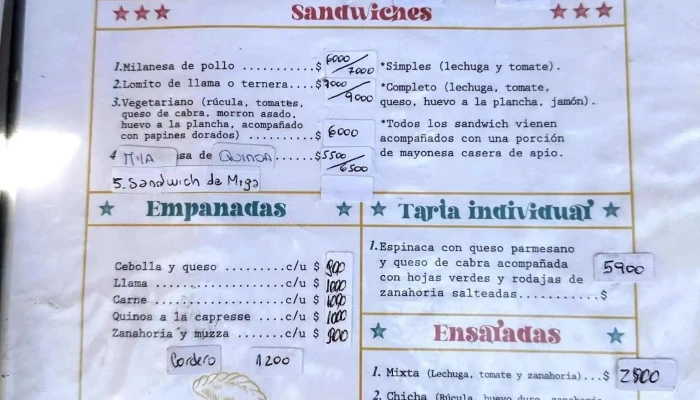 Sandwiches
1.Milanesa de pollo ...........$ 6000/7000
2.Lomito de llama o ternera....$ 7000/9000
3.Vegetariano (rúcula, tomates,
queso de cabra, morron asado,
huevo a la plancha, acompañado
con papines dorados) .........$ 6000
4 MILA esa de QUINOA......$5500/6500
5. Sandwich de Miga
*Simples (lechuga y tomate).
*Completo (lechuga, tomate,
queso, huevo a la plancha, jamón).
*Todos los sandwich vienen
acompañados con una porción
de mayonesa casera de apio.
Empanadas
Cebolla y queso .........c/u $ 900
Llama ...................c/u $ 1000
Carne ...................c/u $ 1000
Quinoa a la capresse ....c/u $ 1000
Zanahoria y muzza .......c/u $ 900
Cordero 1200
Tarta individual
1.Espinaca con queso parmesano
y queso de cabra acompañada
con hojas verdes y rodajas de
zanahoria salteadas............$ 5900
Ensaladas
1. Mixta (Lechuga, tomate y zanahoria)...$ 2800
2. Chicha (Rúcula, huevo duro, zanahoria